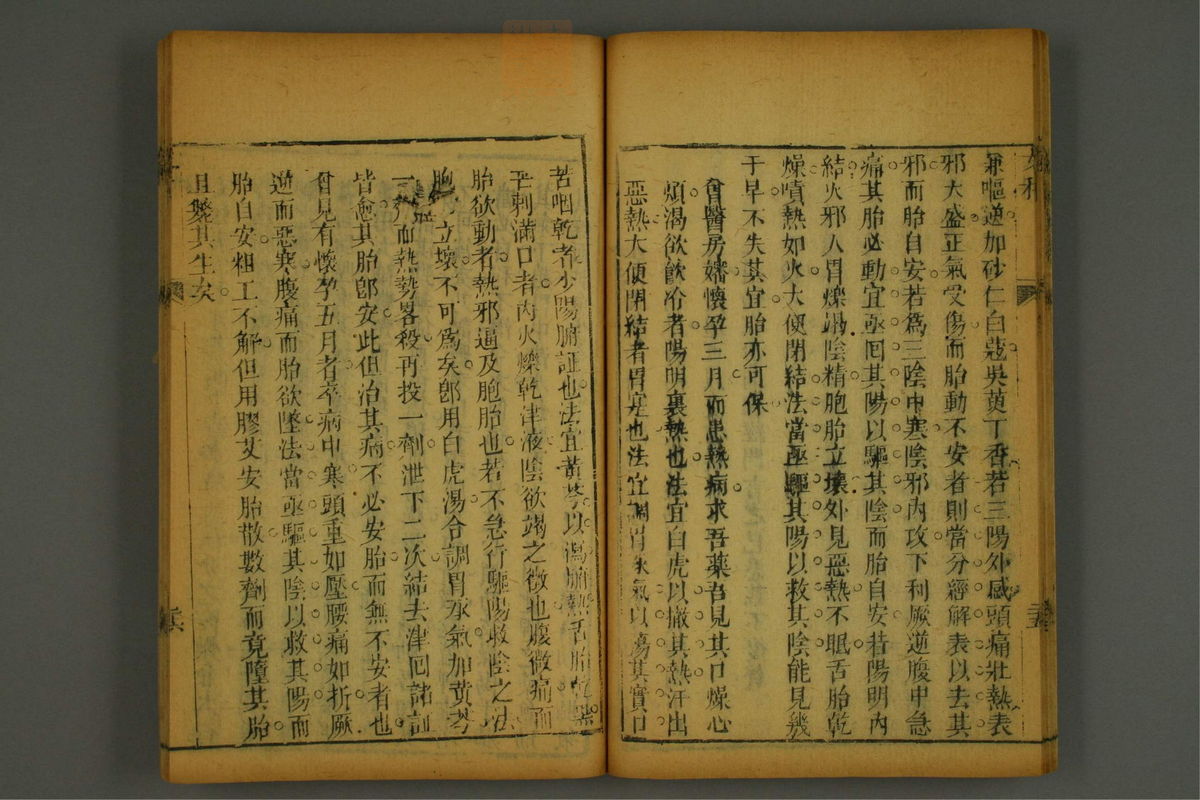 兼嘔逆加砂仁白蔻吳萸丁香若三陽外感頭痛壯熱表
邪大盛正氣受傷而胎動不安者則當分經解表以去其
邪而胎自安若為三陰中寒陰邪內攻下利厥逆腹中急
痛其胎必動宜亟囘其陽以驅其陰而胎自安若陽明內
結火邪入胃爍竭陰精胞胎立壞外見惡熱不眠舌胎乾
燥噴熱如火大便閉結法當亟驅其陽以救其陰能見幾
于早不失其宜胎亦可保
曾醫房嬸懷孕三月而患熱病求吾藥吾見其口燥心
煩渴欲飲冷者陽明裏熱也法宜白虎以撤其熱汗出
惡熱大便閉結者胃實也法宜調胃承氣以蕩其實口
苦咽乾者少陽腑証也法宜黃芩以瀉腑熱舌胎乾黑
芒刺滿口者內火爍乾津液陰欲竭之徵也腹微痛而
胎欲動者熱邪逼及胞胎也若不急行驅陽救陰之法
胞立壞不可為矣卽用白虎湯合調胃承氣加黃芩
一劑而熱勢畧殺再投一劑泄下二次結去津囘諸証
皆愈其胎卽安此但治其病不必安胎而無不安者也
曾見有懷孕五月者卒病中寒頭重如壓腰痛如折厥
逆而惡寒腹痛而胎欲墜法當亟驅其陰以救其陽而
胎自安粗工不解但用膠艾安胎散數劑而竟墮其胎
且斃其生矣
女科
三五
三六